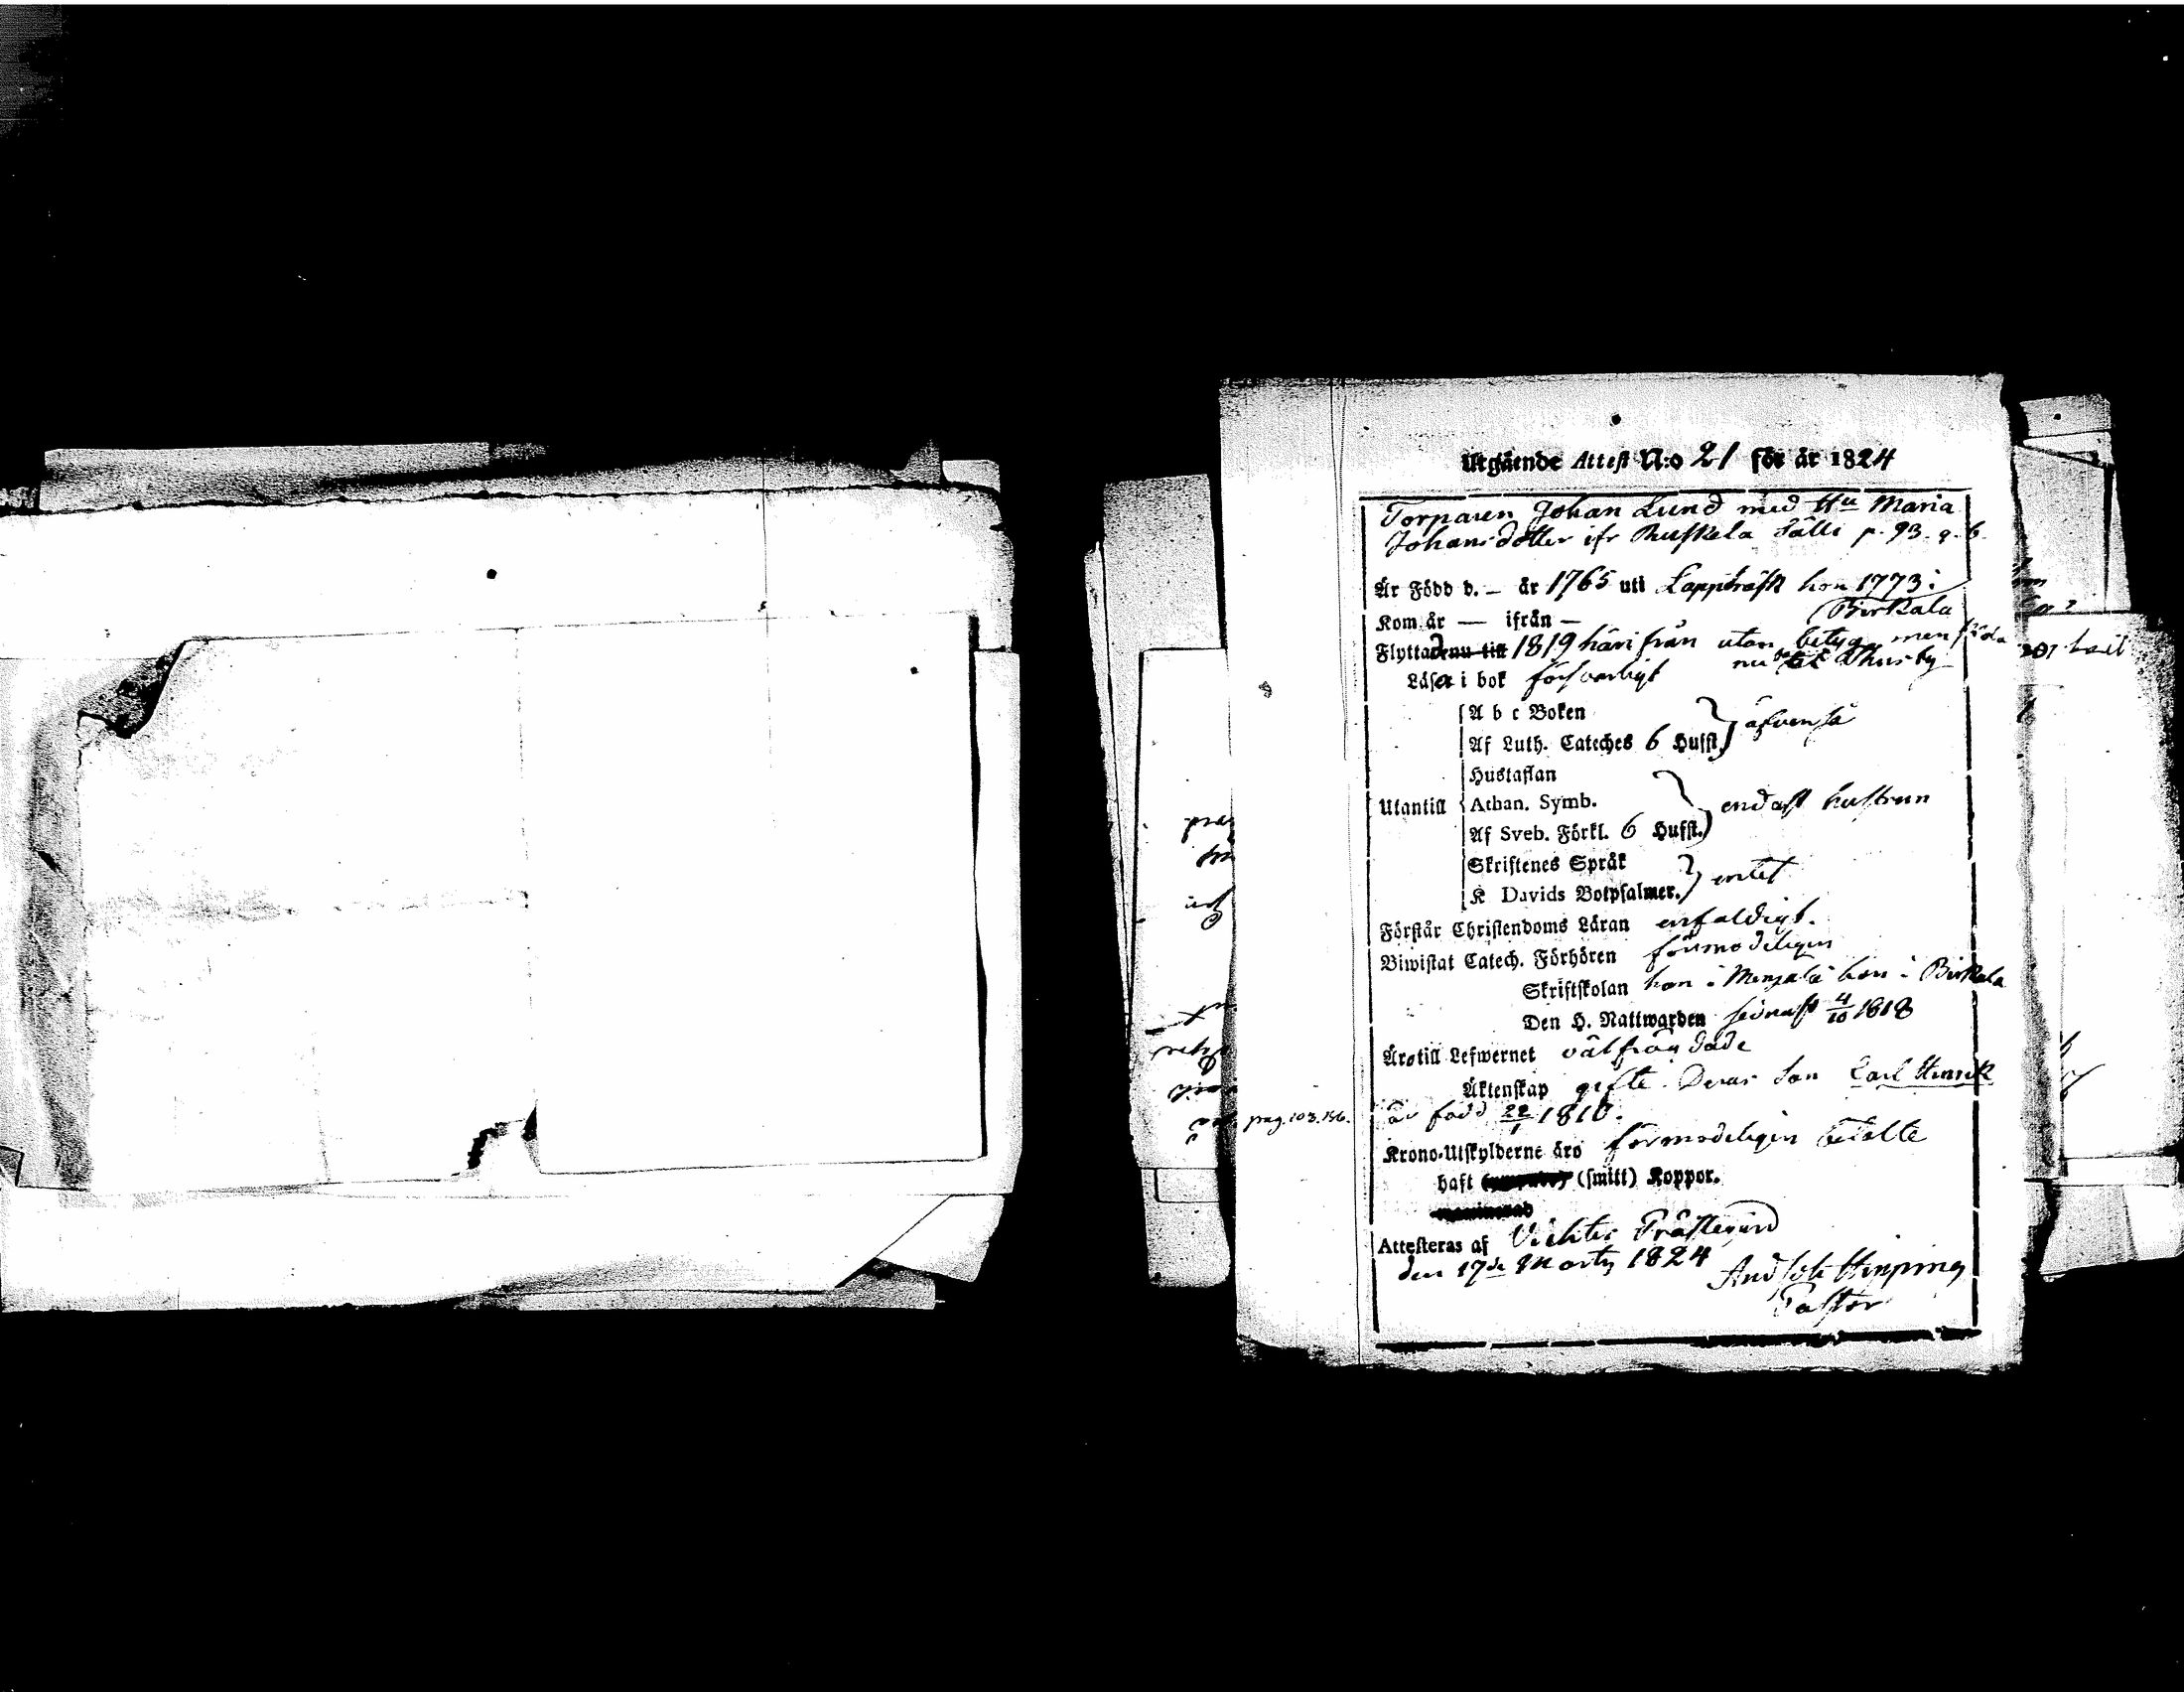 Utgående Attest N:o 21 för år 1824
Torparen Johan Lund med Hu Maria
Johansdotter ifr Ruskela Sälli p. 93. q. 6.
Är Född d. — år 1765 uti Lappträsk hon 1773 i
Birkala
Kom år — ifrån —
Flyttade nu till 1819 härifrån utan betyg men
nu Thusby
Läsa i bok försvarligt
A b c Boken
Af Luth. Cateches 6 Hufst. äfvenså
Hustaflan
Utantill Athan. Symb. endast hustrun
Af Sveb. Förkl. 6 Hufst.
Skriftenes Språk
K Davids Botpsalmer. intet
Förstår Christendoms Läran enfaldigt.
Biwistat Catech. Förhören förmodeligen
Skriftskolan han i hon i Birkala
Den H. Nattwarden sednast 4/10 1818
Äro till Lefwernet välfrägdade
Äktenskap gifte. Deras Son Carl Henrik
pag. 103. är född 22/1 1810.
Krono-Utskylderne äro förmodeligen betalte
haft (smitt) Koppor.
Attesteras af Vichtis Prästegård
den 17de Martij 1824
And Joh Hipping
Pastor